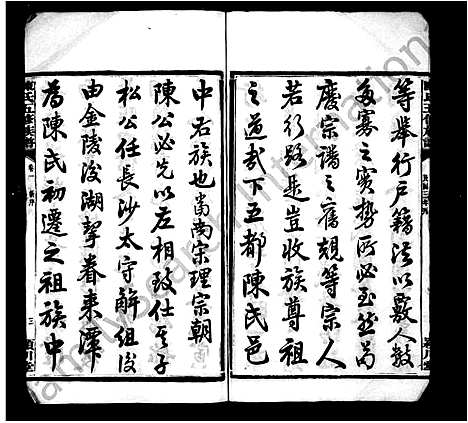 等舉行戶籍法以數人數
多寡之實勢所必至然而
廢宗譜之舊規等宗人
若行路是豈收族尊祖
之道哉下五都陳氏邑
中右族也當南宋理宗朝
陳公必先以左相致仕其子
松公任長沙太守解組後
由金陵後湖挈眷來潭
為陳氏初遷之祖族中
陳氏五修族譜
卷一
三
潁川堂
FamilySearch International